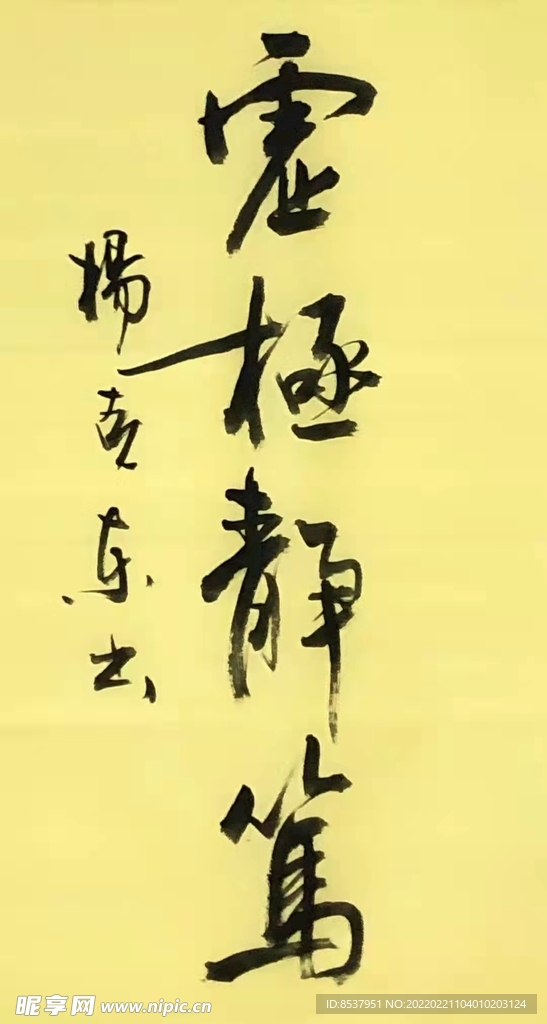 虚極静篤
楊喜东书
昵享网 www.nipic.cn
ID:8537951 NO:20220221104010203124